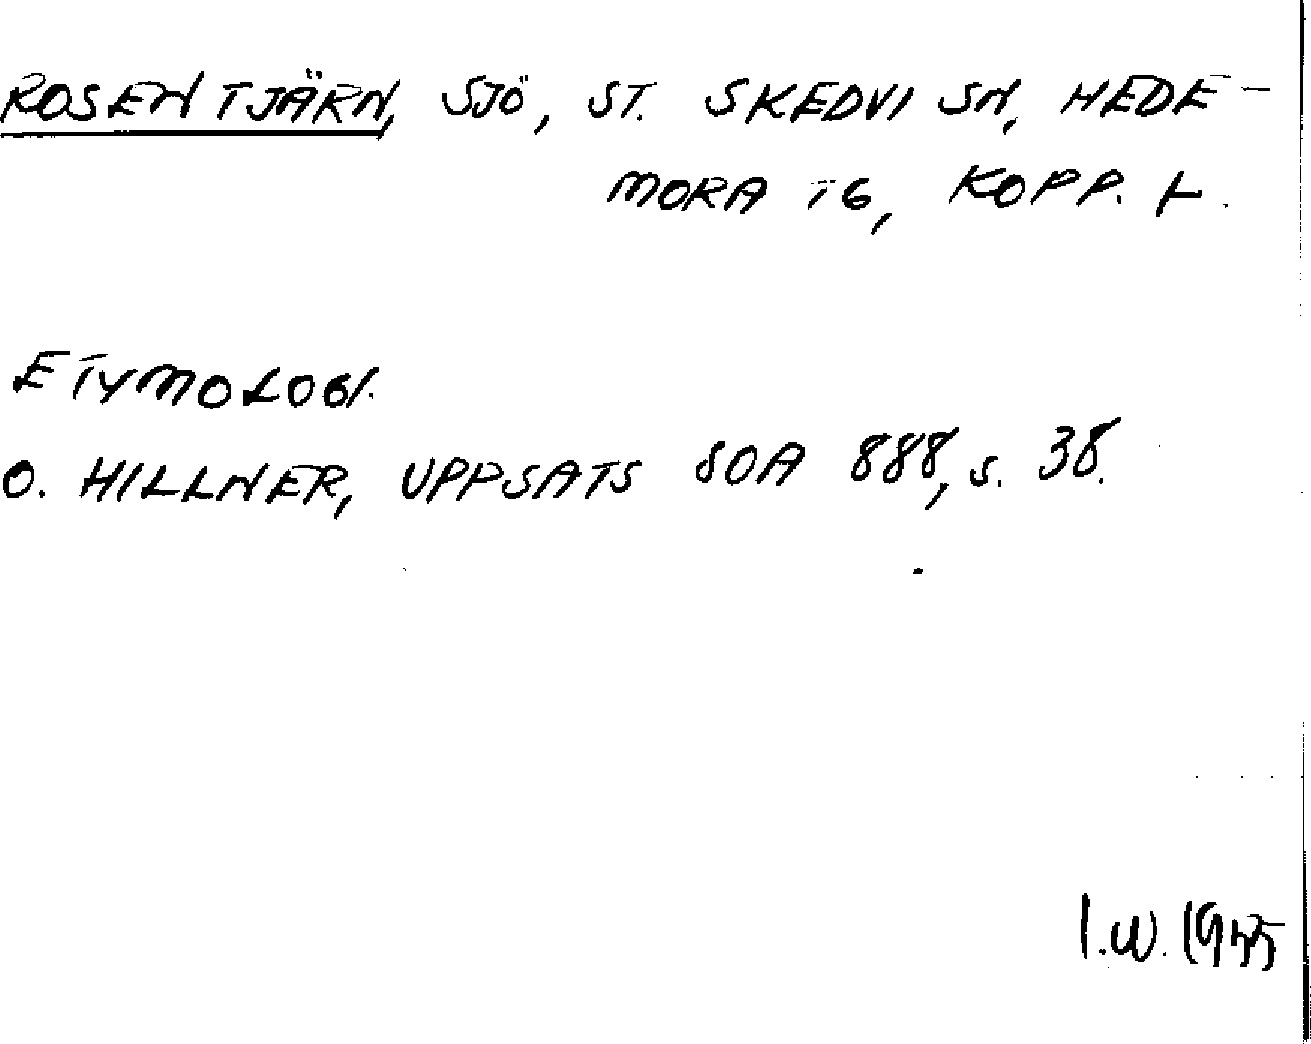 ROSENTJÄRN, SJÖ, ST. SKEDVI SN, HEDE-
MORA TG, KOPP. L.
ETYMOLOGI.
O. HILLNER, UPPSATS SOA 888, S. 38.
I.W. 1955